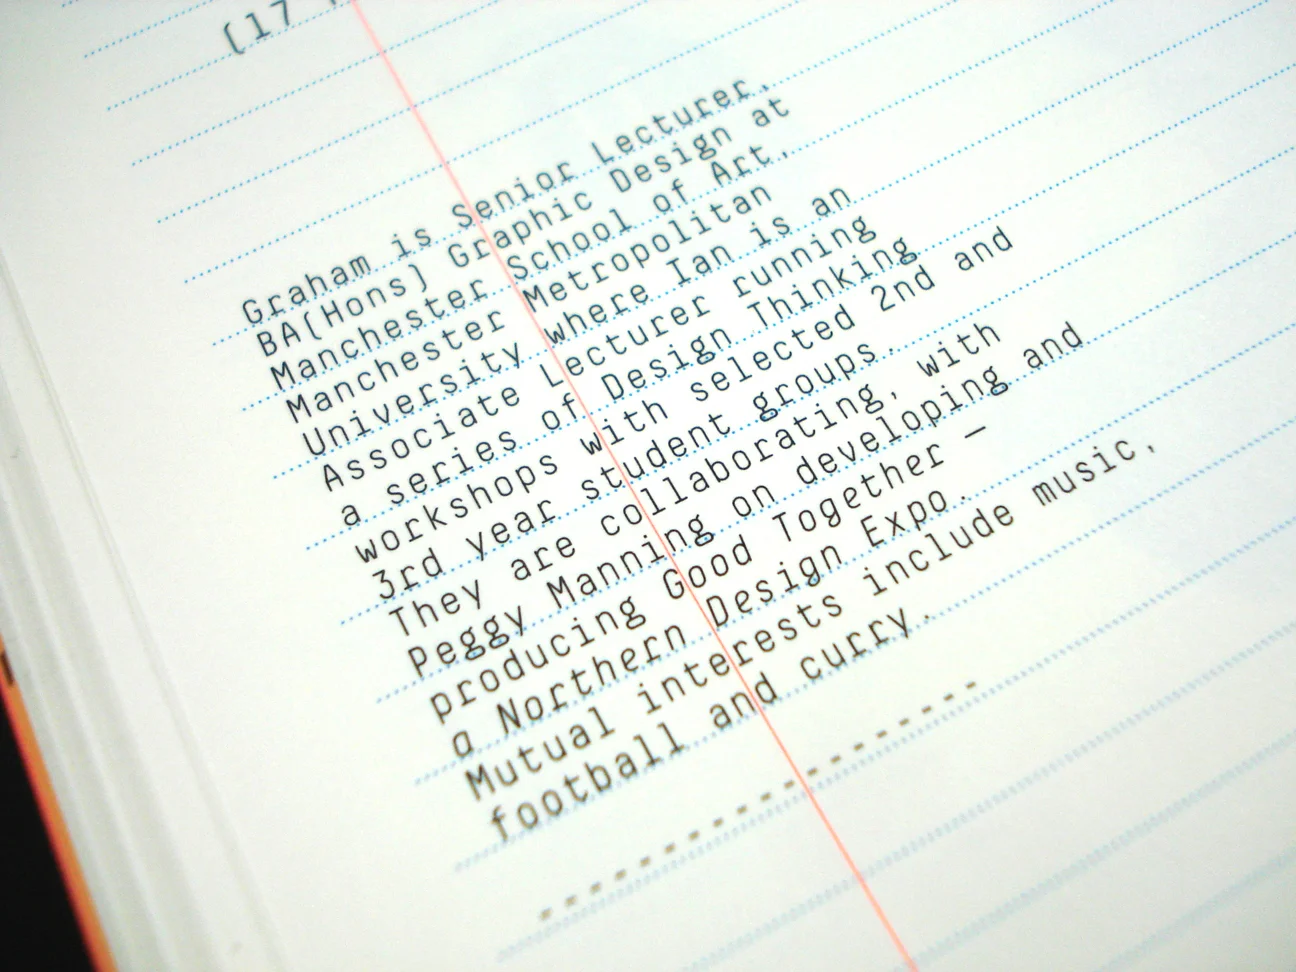 (17
Graham is Senior Lecturer,
BA(Hons) Graphic Design at
Manchester School of Art,
Manchester Metropolitan
University where Ian is an
Associate Lecturer running
a series of Design Thinking
workshops with selected 2nd and
3rd year student groups.
They are collaborating, with
Peggy Manning on developing and
producing Good Together –
a Northern Design Expo.
Mutual interests include music,
football and curry.